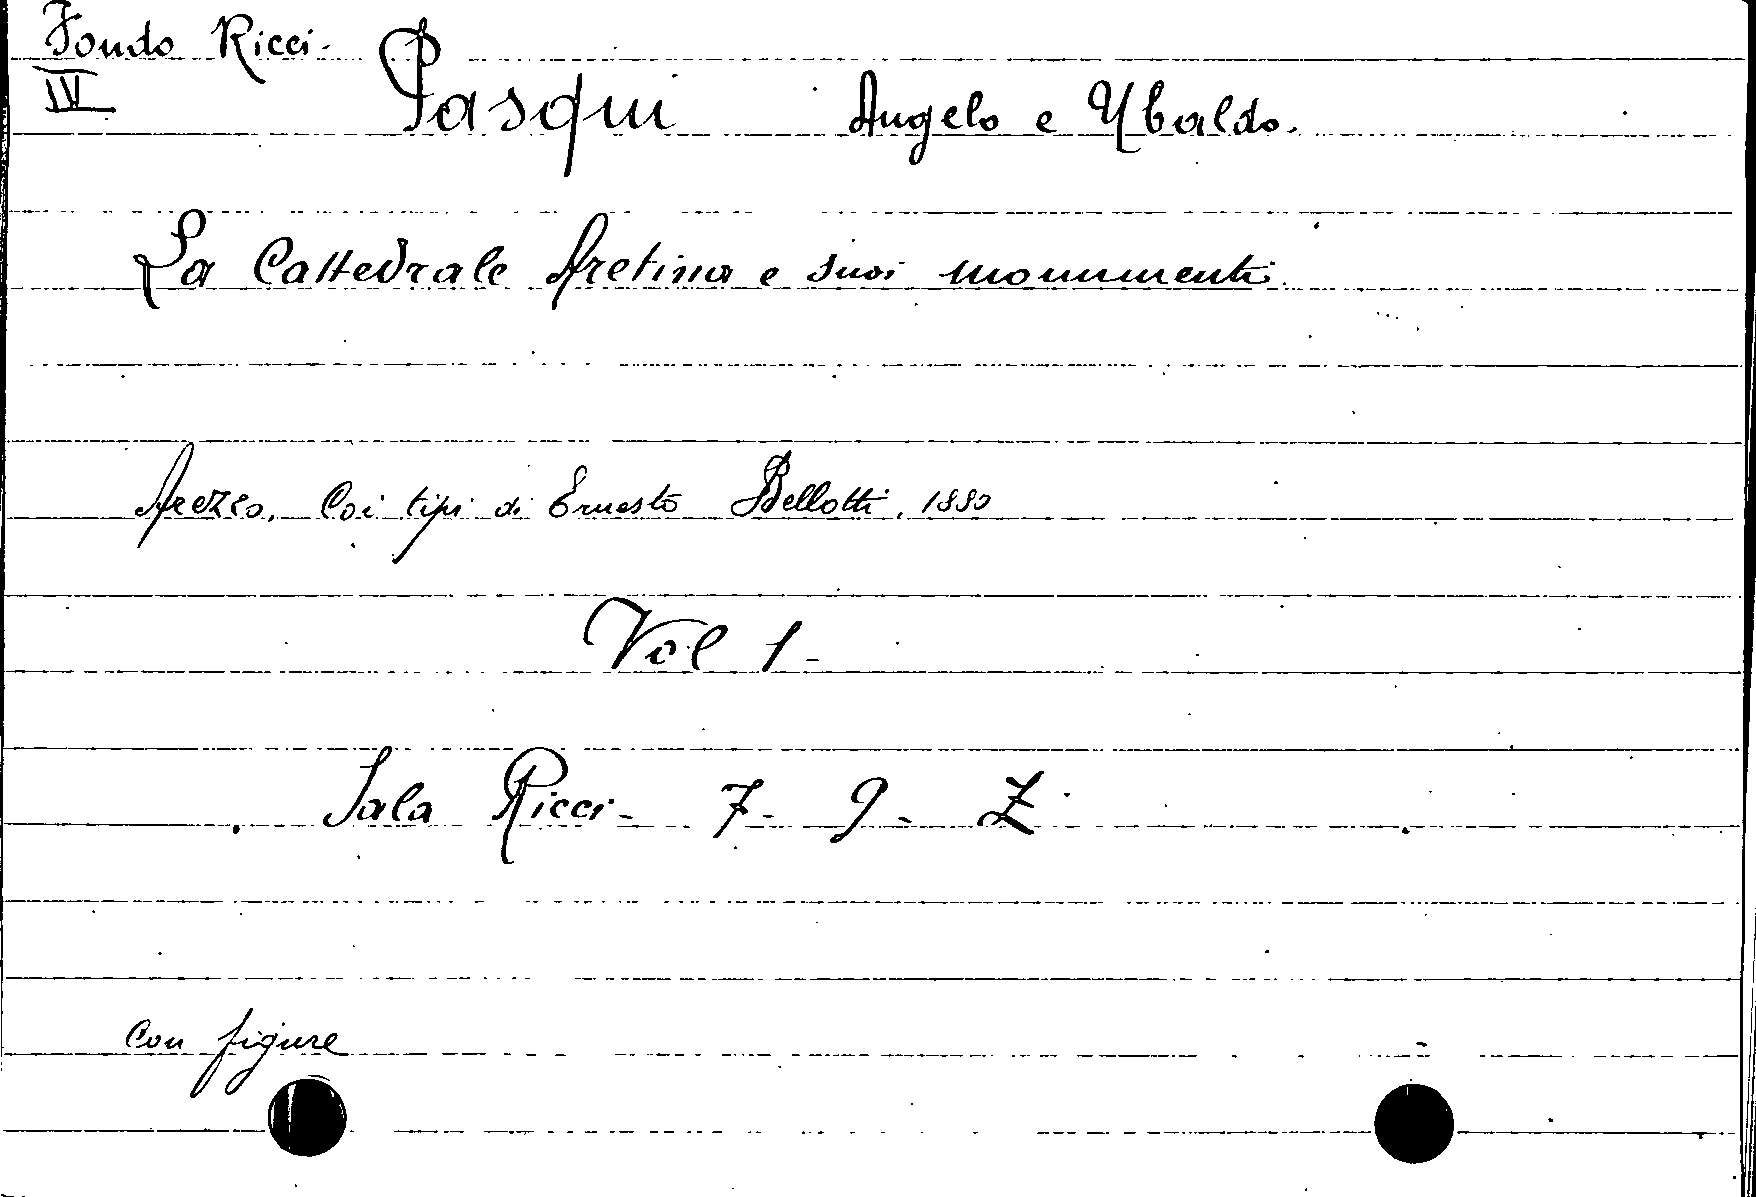 Fondo Ricci.
IV
Pasqui Angelo e Ubaldo.
La Cattedrale Aretina e suoi monumenti.
Arezzo. Coi tipi di Ernesto Bellotti, 1880
Vol 1-
Sala Ricci- 7- 9- Z
con figure